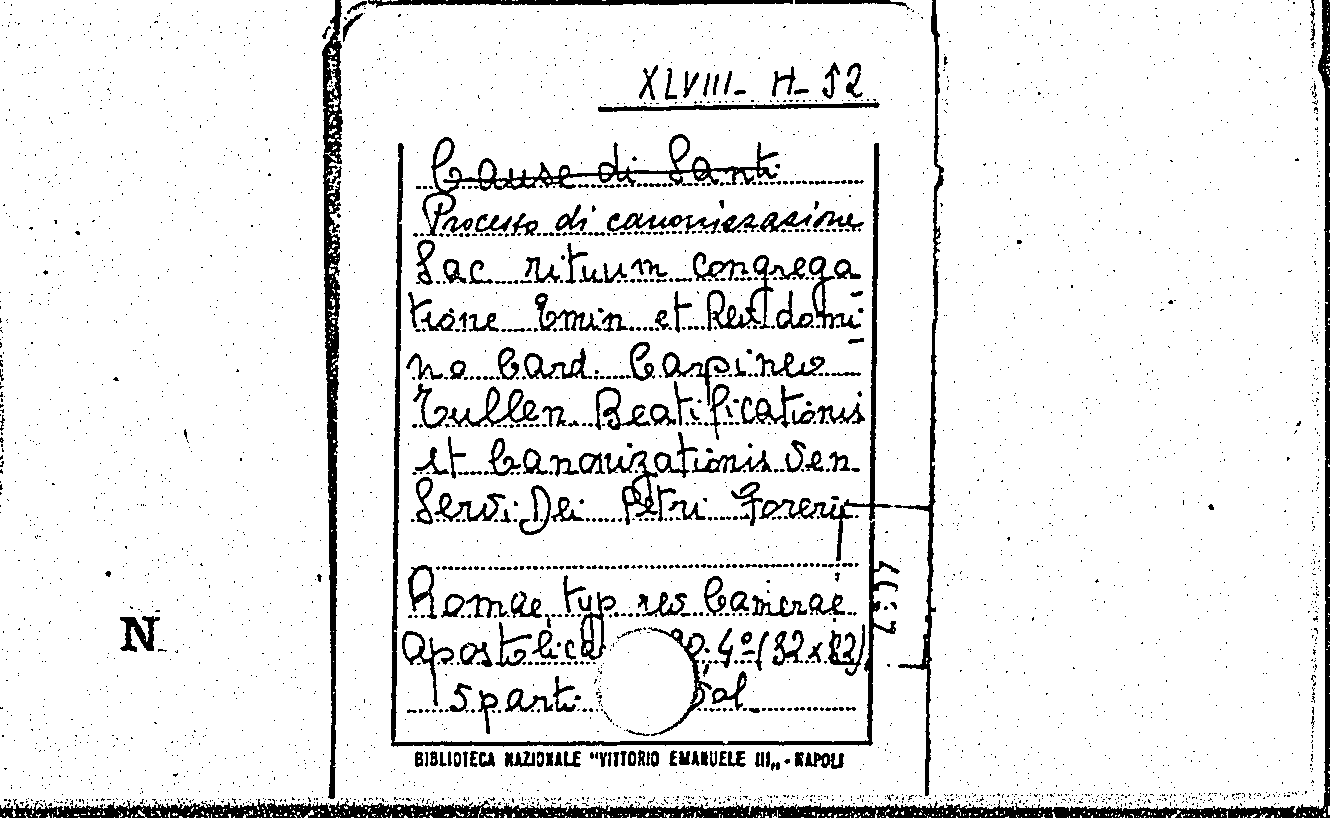 XLVIII- H- 52
Cause di Santi
Processo di canonizzazione
Sac rituum congrega
tione Emin et Rev domi-
no Card. Carpineo
Tullen Beatificationis
et Canonizationis Ven
Servi Dei Petri Forerii
Romae typ res Camerae
apostolica 4º (32x22)
5 parti
N
BIBLIOTECA NAZIONALE "VITTORIO EMANUELE III„ - NAPOLI